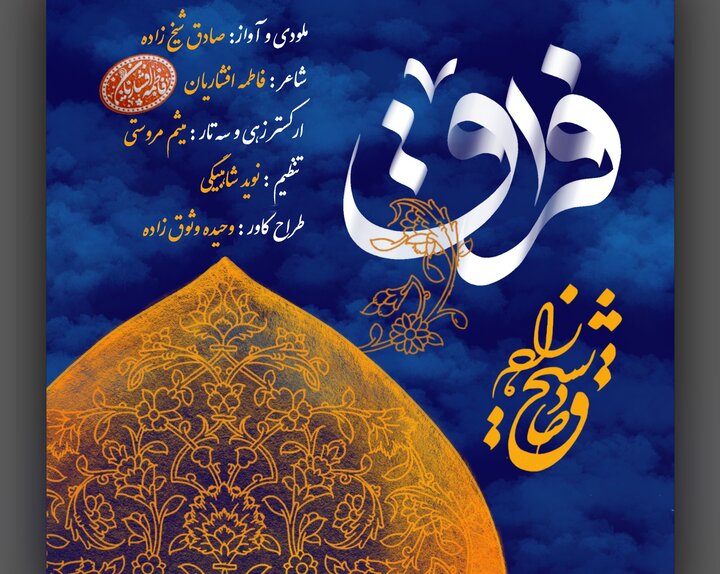 فراق
ملودی و آواز: صادق شیخ زاده
شاعر: فاطمه افشاریان
ارکستر زهی و سه تار: میثم مروستی
تنظیم: نوید شاهبیگی
طراح کاور: وحیده وثوق زاده
فاطمه افشاریان
صادق شیخ زاده